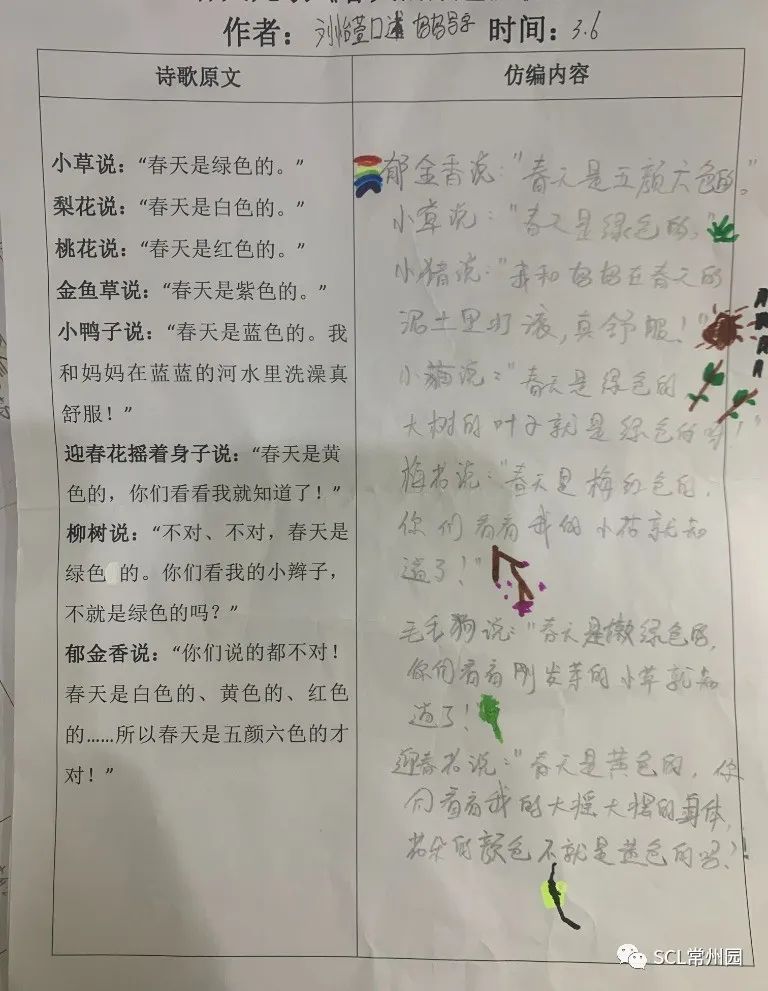 作者：刘怡萱口述 妈妈写字 时间：3.6
诗歌原文
仿编内容
小草说：“春天是绿色的。”
梨花说：“春天是白色的。”
桃花说：“春天是红色的。”
金鱼草说：“春天是紫色的。”
小鸭子说：“春天是蓝色的。我
和妈妈在蓝蓝的河水里洗澡真
舒服！”
迎春花摇着身子说：“春天是黄
色的，你们看看我就知道了！”
柳树说：“不对、不对，春天是
绿色 的。你们看我的小辫子，
不就是绿色的吗？”
郁金香说：“你们说的都不对！
春天是白色的、黄色的、红色
的……所以春天是五颜六色的才
对！”
郁金香说：“春天是五颜六色的。”
小草说：“春天是绿色的。”
小猪说：“我和妈妈在春天的
泥土里打滚，真舒服！”
小猫说：“春天是绿色的，
大树的叶子就是绿色的哟！”
梅花说：“春天是梅红色的，
你们看看我的小花就知
道了！”
毛毛狗说：“春天是嫩绿色的，
你们看看刚发芽的小草就知
道了！”
迎春花说：“春天是黄色的，你
们看看我的大摇大摆的身体，
花朵的颜色不就是黄色的吗？”
SCL常州园